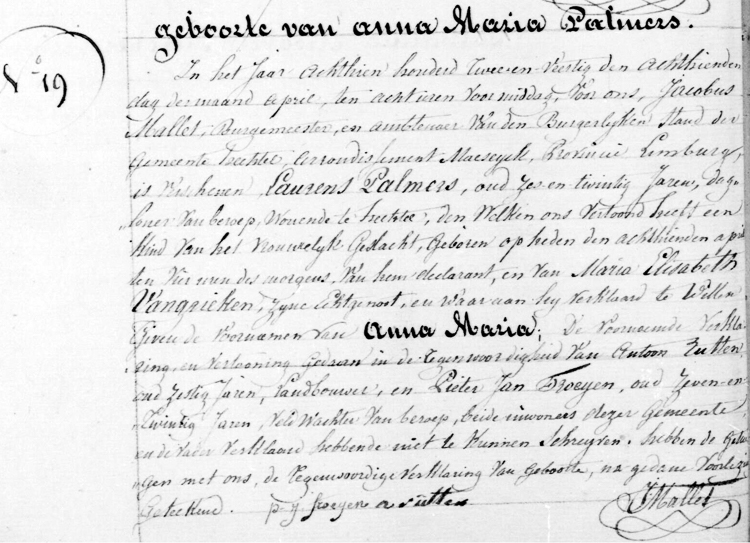 geboorte van anna Maria Palmers.
N° 19
In het Jaar achthien honderd Twee en Veertig den achthienden
dag der maand april, ten acht uren voormiddag, Voor ons, Jacobus
Mallet, Burgemeester, en ambtenaar Van den Burgerlyken Stand der
Gemeente hechtel, arrondissement Maeseyck, Provincie Limburg,
is Verschenen Laurens Palmers, oud Zes-en-twintig Jaren, dag-
loner Van beroep, Wonende te hechtel, den Welken ons Vertoond heeft een
Kind Van het Vrouwelyk Geslacht, Geboren op heden den achthienden april
ten Vier uren des morgens, Van hem declarant, en Van Maria Elisabeth
Vangrieken, Zyne Echtgenoot, en waar aan hy Verklaard te Willen
Geven de Voornamen van anna Maria; De Voornoemde Verkla-
ring, en Vertooning Gedaan in de Tegenwoordigheid Van Antoon Rutten
oud Zestig Jaren, Landbouwer, en Pieter Jan Froeyen, oud Zeven-en-
Twintig Jaren, Veld Wachter Van beroep, beide inwoners dezer Gemeente
en de Vader Verklaard hebbende niet te Kunnen Schreyven, hebben de Getui-
gen met ons, de tegenwoordige Verklaring Van Geboorte, na gedane Voorlezing
Geteekend. p. j. froeyen a rutten JMallet